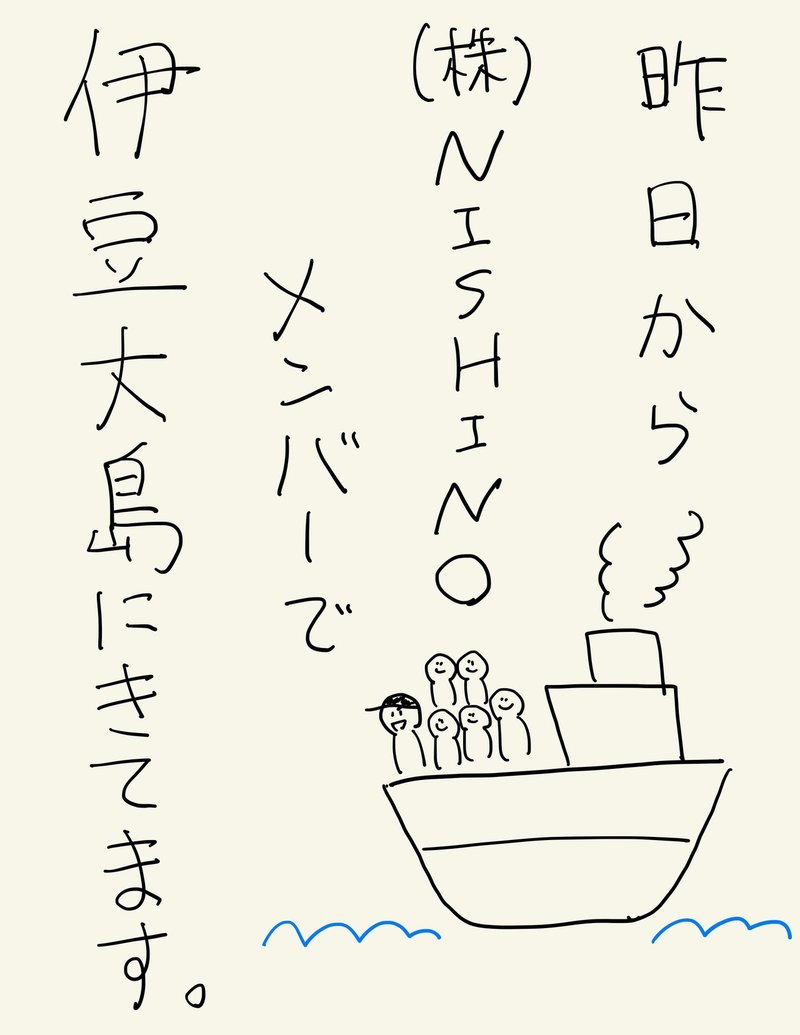 昨日から
(株)NISHINO
メンバーで
伊豆大島にきてます。